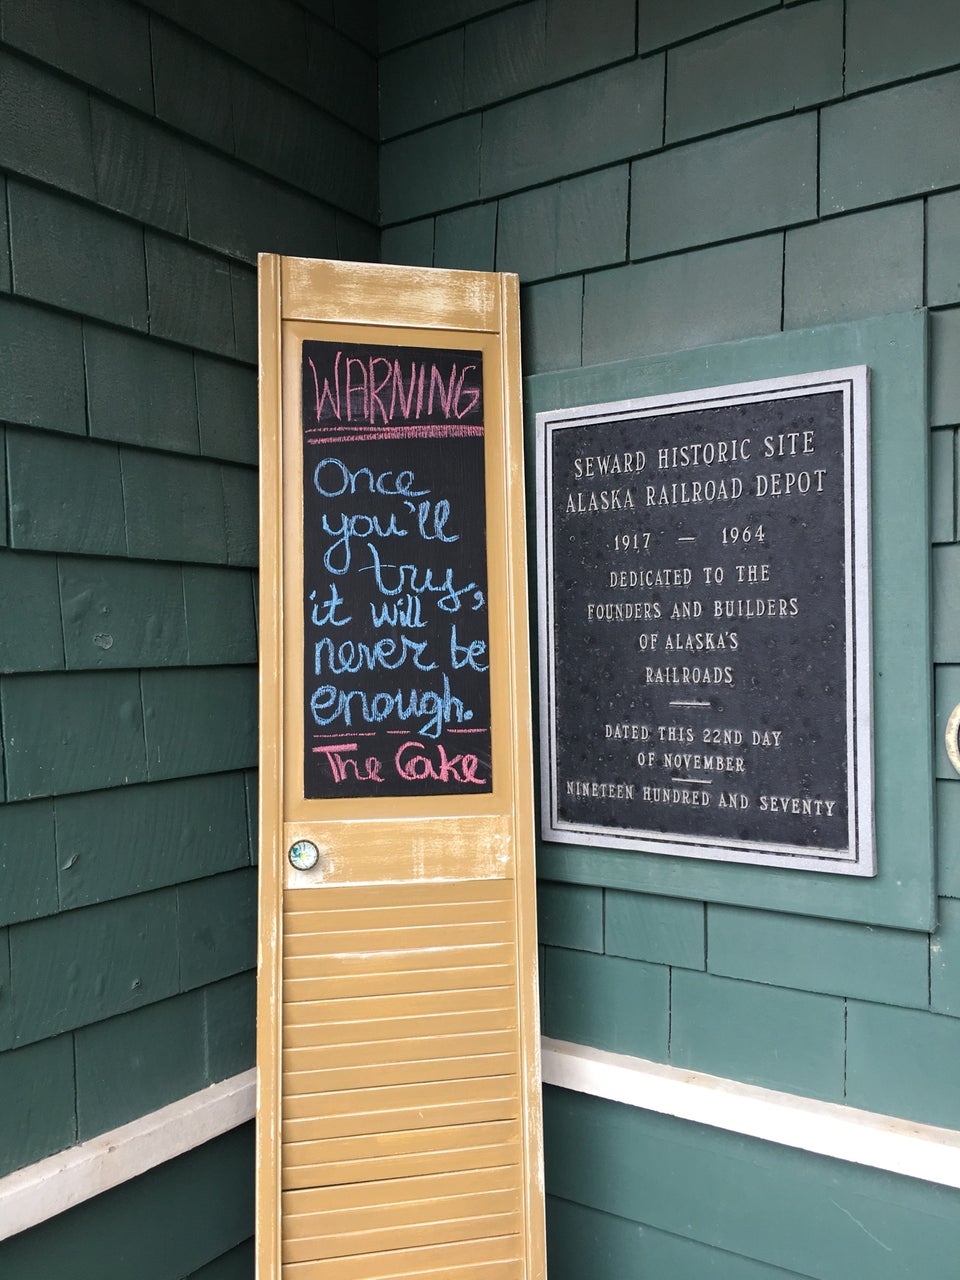 WARNING
Once
you'll
try,
it will
never be
enough.
The Cake
SEWARD HISTORIC SITE
ALASKA RAILROAD DEPOT
1917 — 1964
DEDICATED TO THE
FOUNDERS AND BUILDERS
OF ALASKA'S
RAILROADS
DATED THIS 22ND DAY
OF NOVEMBER
NINETEEN HUNDRED AND SEVENTY